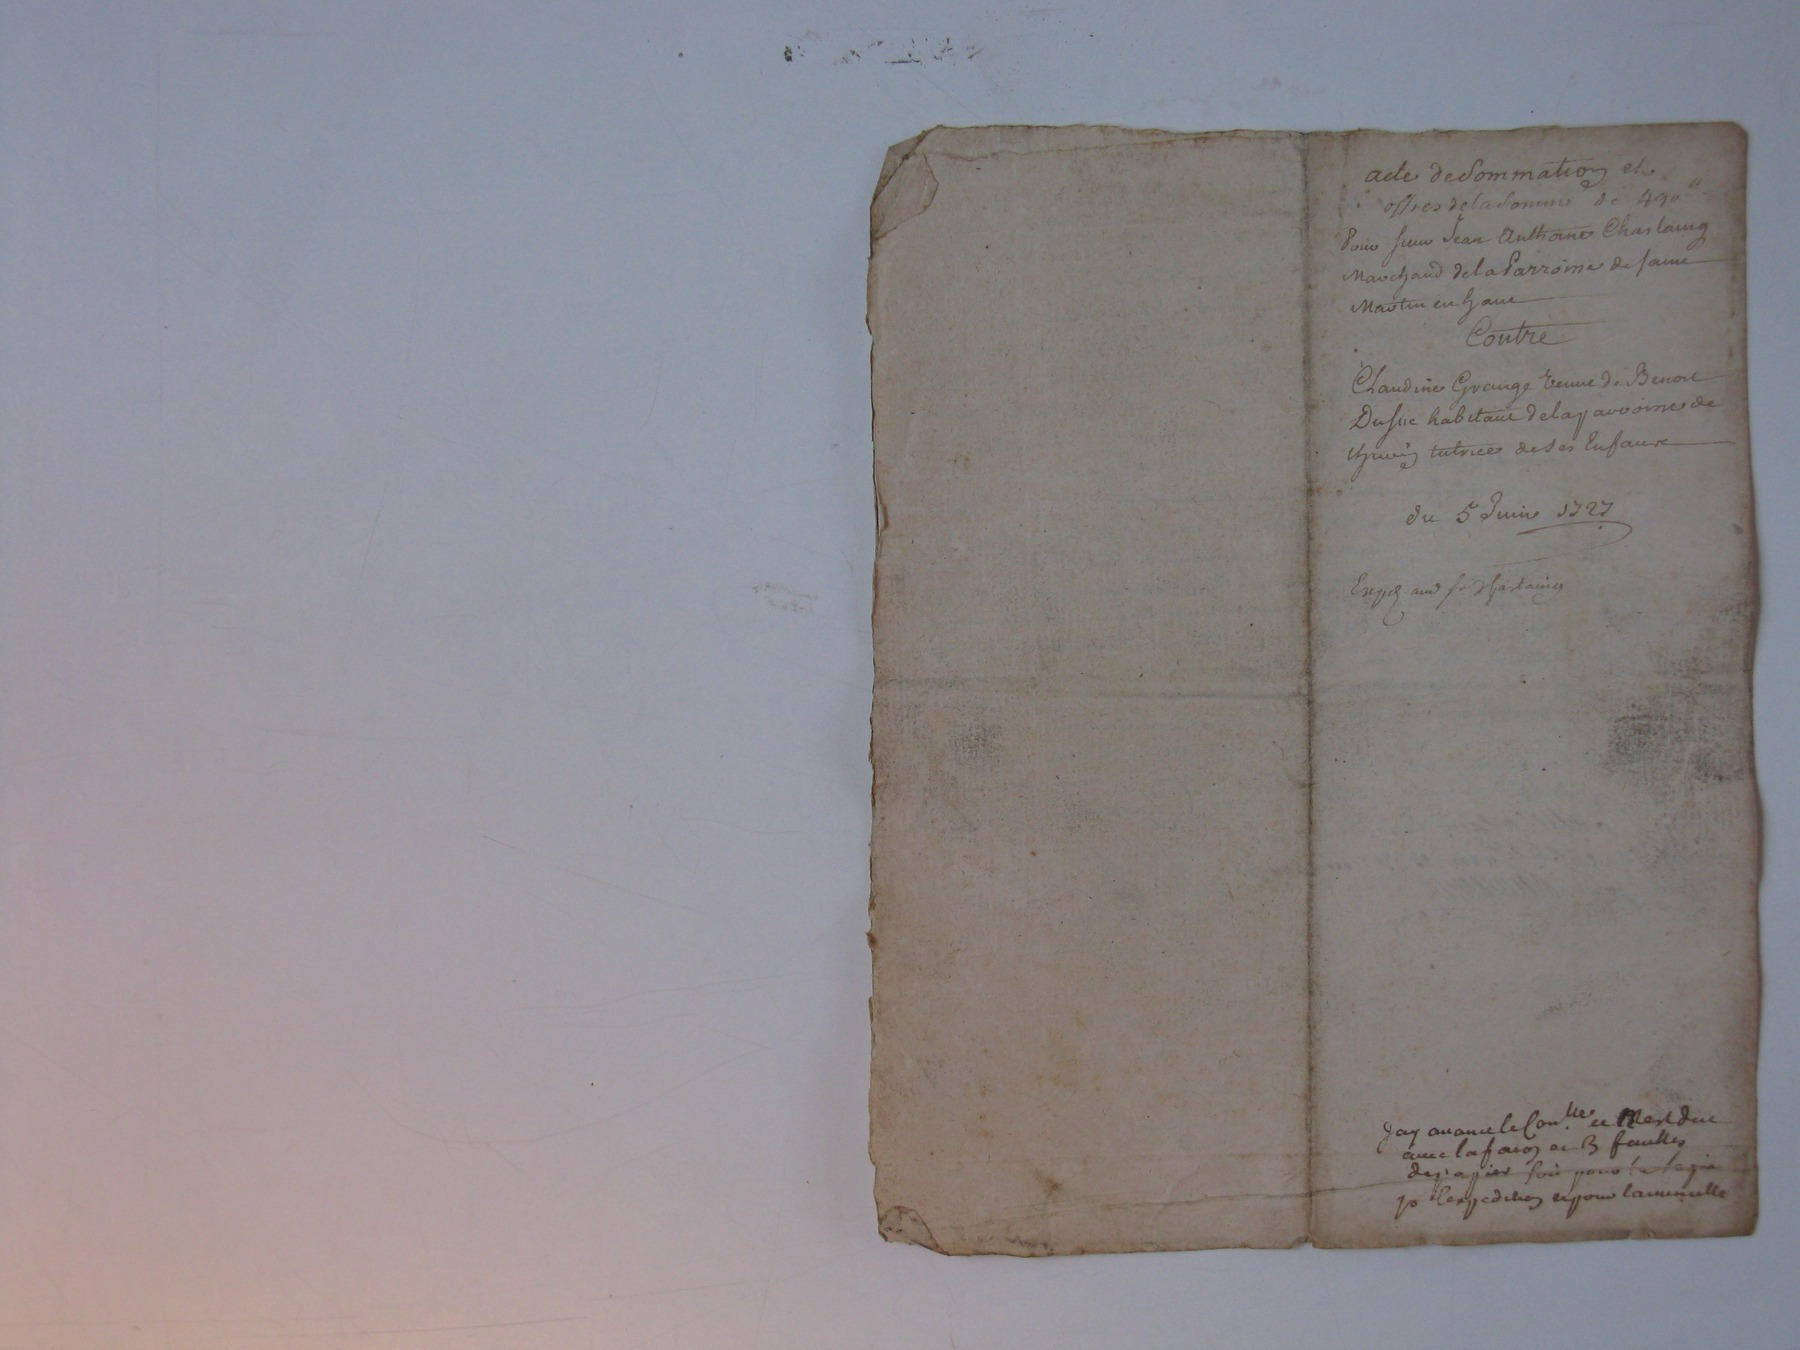 acte de Sommation et
offres de la Somme de 490
Pour sieur Jean Anthoine Chastaing
Marchand de la Parroisse de saint
Martin en haut
Contre
Claudine Grange veuve de Benoit
Dusuc habitant de la parroisse de
tutrice de ses Enfants
du 5 Juin 1727
Exped au sr Chastaing
Jay avancé le Con.lle et M'est due
avec la façon et 3 feuilles
de papier soit pour la copie
po l'expedition et pour la minutte